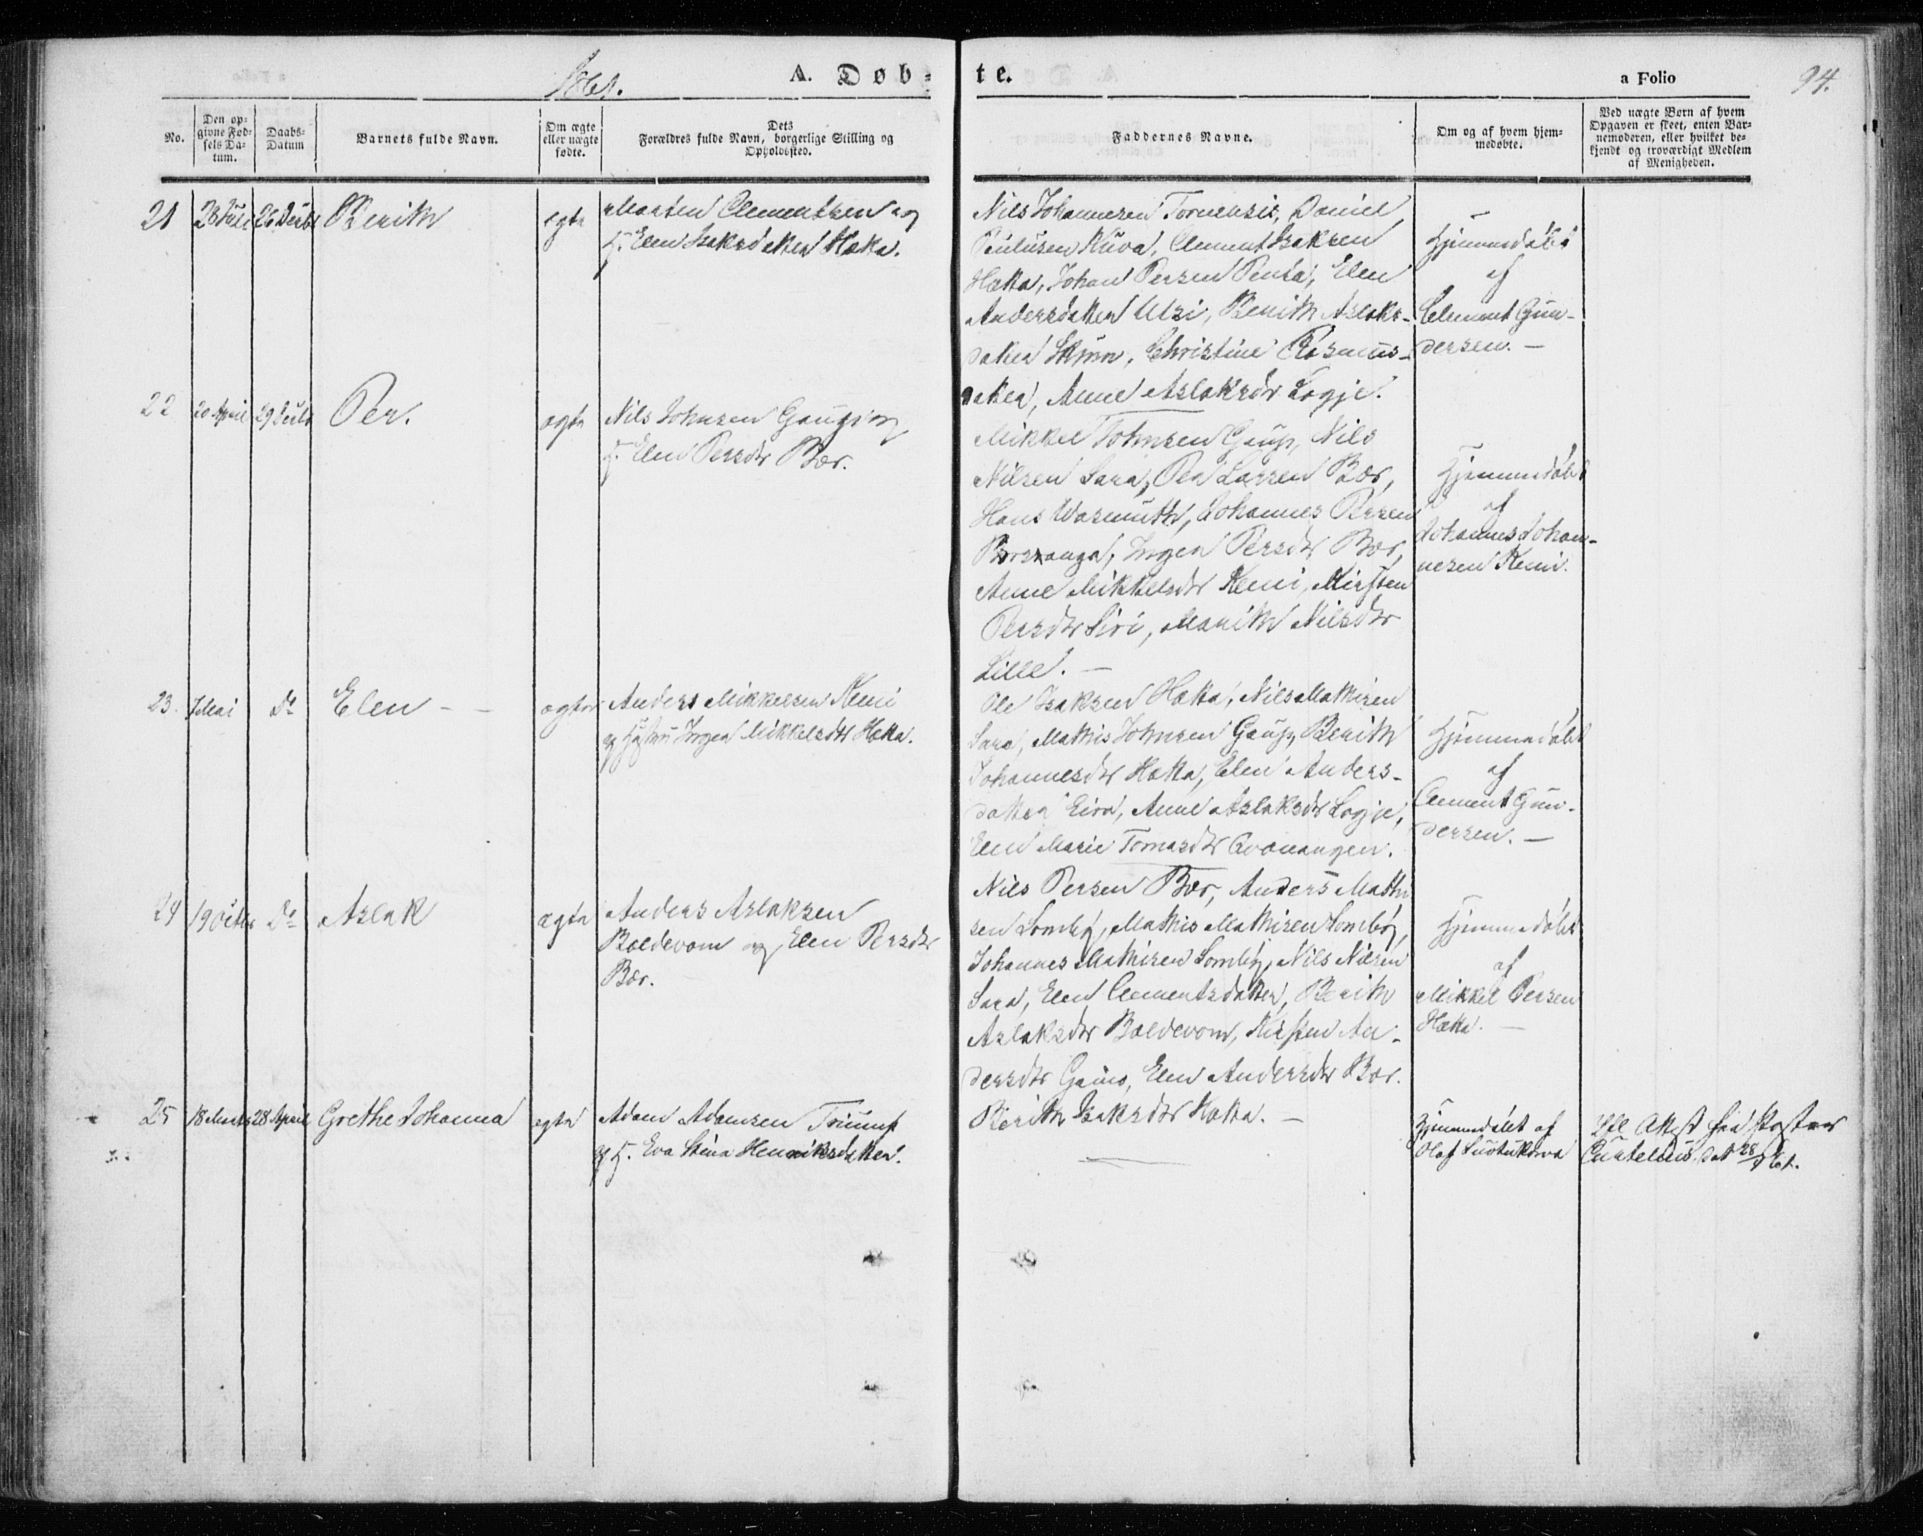 1861.
A. Døb-
te.
a Folio
94.
No.
Den op-
givne Fød-
sels Da-
tum.
Daabs-
Datum
Barnets fulde Navn.
Om ægte
eller uægte
fødte.
Dets
Forældres fulde Navn, borgerlige Stilling og
Opholdssted.
Faddernes Navne.
Om og af hvem hjem-
medøbte.
Ved uægte Børn af hvem
Opgaven er skeet, enten Bar-
nemoderen, eller hvilket be-
kjendt og troværdigt Medlem
af Menigheden.
21
Berith
egte
Morten Clementsen og
H. Elen Isaksdatter Hætta.
Nils Johannesen Tornensis, Daniel
Paulusen Kuva, Clement Isaksen
Hætta, Johan Persen Penta, Elen
Andersdatter Utsi, Berith Aslaks-
datter Skum, Christine Rasmus-
datter, Anne Aslaksdtr Logje.
Hjemmedøbt
af
Clement Gun-
dersen. —
22
20 April
29 Juli
Per.
ægte
Nils Johnsen Gaup og
H. Elen Persdtr Bær.
Mikkel Johnsen Gaup, Nils
Nilsen Sara, Per Larsen Bær,
Hans Wasmuth, Johannes Persen
Porsanga, Ingen Persdtr Bær,
Anne Mikkelsdtr Kemi, Kirsten
Persdtr Siri, Marith Nilsdtr
Lille. —
Hjemmedøbt
af
Johannes Johan-
nesen Kemi.
23.
Mai
Do
Elen - -
ægte
Anders Mikkelsen Kemi
og Hustru Ingen Mikkelsdtr Hætta.
Ole Isaksen Hætta, Nils Mathisen
Sara, Mathis Johnsen Gaup, Berith
Johannesdtr Hætta, Elen Anders-
datter Eira, Anne Aslaksdtr Logje,
Elen Marie Tomasdtr Qvænangen.
Hjemmedøbt
af
Clement Gun-
dersen. —
24
19 Octbr
Do
Aslak
ægte
Anders Aslaksen
Baldevom og Elen Persdtr
Bær.
Nils Persen Bær, Anders Mathi
sen Somby, Mathis Mathisen Somby,
Johannes Mathisen Somby, Nils Nilsen
Sara, Elen Clementsdatter, Berith
Aslaksdtr Baldevom, Kirsten An-
dersdtr Gaino, Elen Andersdtr Bær.
Hjemmedøbt
af
Mikkel Persen
Hætta. —
25
18 Marts
28 April
Grethe Johanna
egte
Adam Adamsen Triumf
og H. Eva Stina Henriksdatter.
Berith Isaksdtr Hætta. —
Hjemmedøbt af
Olaf